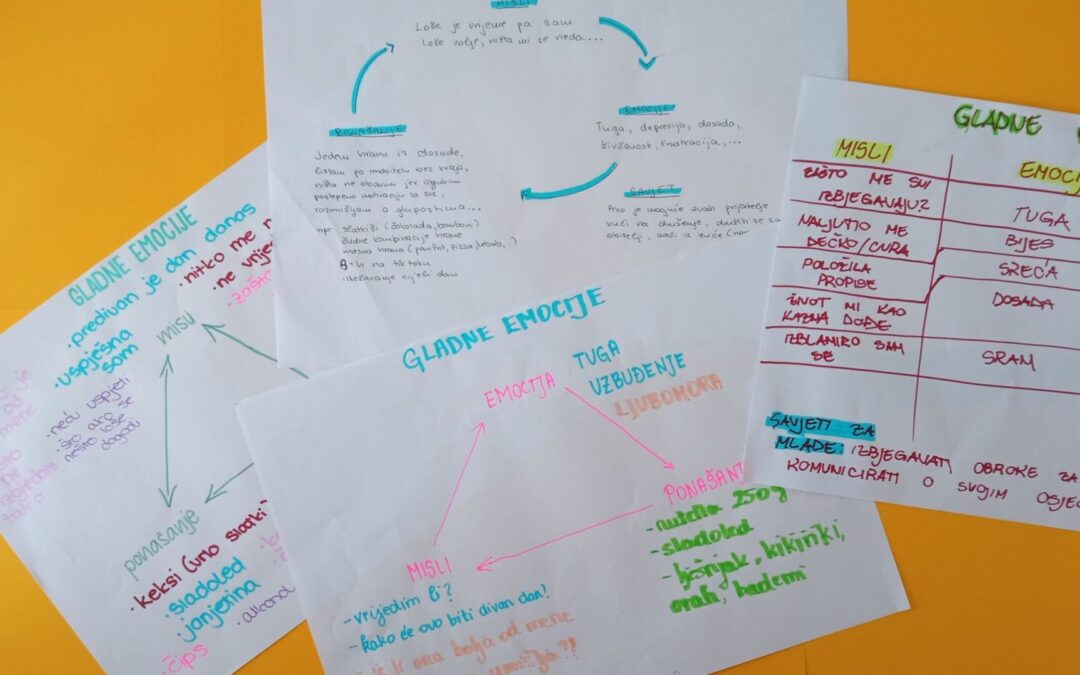 MISLI
Loše je vrijeme pa sam
loše volje, ništa mi se neda...
EMOCIJE
Tuga, depresija, dosada,
živčanost, frustracija,...
SAVJET
Ako je moguće zvati prijatelje
kući na druženje, družiti se sa
obitelji, izaći iz kuće
PONAŠANJE
Jedem hranu iz dosade,
listam po mobitelu bez kraja,
ništa ne obavim jer izgubim
postepeno motivaciju za sve,
rozmišljam o glupostima...
npr. slatkiši (čokolada, bomboni)
čudne kombinacije hrane
masna hrana (pomfrit, pizza, kebab,..)
8h na tik toku
ležavanje cijeli dan
GLADNE
MISLI
EMOCIJ
ZAŠTO ME SVI
IZBJEGAVAJU?
TUGA
NALJUTIO ME
DEČKO/CURA
BIJES
POLOŽILA
PROPISE
SREĆA
ŽIVOT MI KAO
KAZNA DOĐE
DOSADA
IZBLAMIRO SAM
SE
SRAM
SAVJETI ZA
MLADE: IZBJEGAVATI OBROKE ZA
KOMUNICIRATI O SVOJIM OSJEĆ
GLADNE EMOCIJE
misli
• predivan je dan danas
• uspješna
sam
• nitko me
ne vrije
zašto
• neću uspjeti
• što ako
nešto loše se
dogodi
je
od
mene
ne
izgledam
tako
ponašanje
• keksi (uno slatki
• sladoled
• janjetina
• čips
• alkohol
GLADNE EMOCIJE
EMOCIJA
TUGA
UZBUĐENJE
LJUBOMORA
PONAŠANJ
- nutella 250g
- sladoled
- lješnjak, kikiriki,
orah, bademi
MISLI
- vrijedim li?
- kako će ovo biti divan dan!
li ona bolja od mene